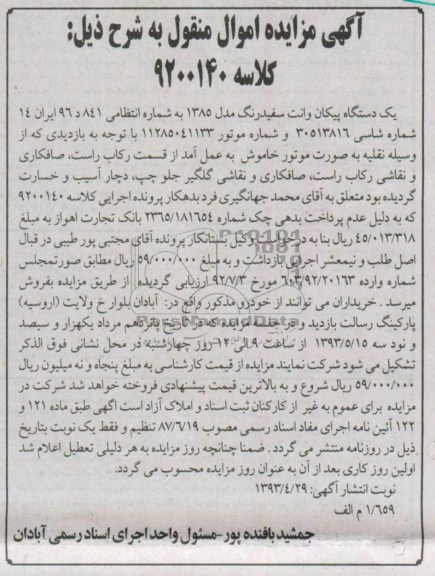 آگهی مزایده اموال منقول به شرح ذیل:
کلاسه ۹۲۰۰۱۴۰
یک دستگاه پیکان وانت سفیدرنگ مدل ۱۳۸۵ به شماره انتظامی ۸۴۱ د ۹۶ ایران ۱۴
شماره شاسی ۳۰۵۱۳۸۱۶ و شماره موتور ۱۱۲۸۵۰۴۱۱۳۳ با توجه به بازدیدی که از
وسیله نقلیه به صورت موتور خاموش به عمل آمد از قسمت رکاب راست، صافکاری
و نقاشی رکاب راست، صافکاری و نقاشی گلگیر جلو چپ، دچار آسیب و خسارت
گردیده بود متعلق به آقای محمد جهانگیری فرد بدهکار پرونده اجرایی کلاسه ۹۲۰۰۱۴۰
که به دلیل عدم پرداخت بدهی چک شماره ۲۳۶۵/۱۸۱۶۵۴ بانک تجارت اهواز به مبلغ
۴۵/۰۱۳/۳۱۸ ریال بنا به درخواست وکیل بستانکار پرونده آقای مجتبی پور طیبی در قبال
اصل طلب و نیمعشر اجرایی بازداشت و به مبلغ ۵۹/۰۰۰/۰۰۰ ریال مطابق صورتمجلس
شماره وارده ۶۰۳/۹۲/۲۰۱۶۳ مورخ ۹۲/۷/۳ ارزیابی گردیده از طریق مزایده بفروش
میرسد. خریداران می توانند از خودرو مذکور واقع در: آبادان بلوار خ ولایت (اروسیه)
پارکینگ رسالت بازدید و در جلسه مزایده که در تاریخ پانزدهم مرداد یکهزار و سیصد
و نود سه ۱۳۹۳/۵/۱۵ از ساعت ۹ الی ۱۲ روز چهارشنبه در محل نشانی فوق الذکر
تشکیل می شود شرکت نمایند مزایده از قیمت کارشناسی به مبلغ پنجاه و نه میلیون ریال
۵۹/۰۰۰/۰۰۰ ریال شروع و به بالاترین قیمت پیشنهادی فروخته خواهد شد شرکت در
مزایده برای عموم به غیر از کارکنان ثبت اسناد و املاک آزاد است اگهی طبق ماده ۱۲۱ و
۱۲۲ آئین نامه اجرای مفاد اسناد رسمی مصوب ۸۷/۶/۱۹ تنظیم و فقط یک نوبت بتاریخ
ذیل در روزنامه منتشر می گردد. ضمنا چنانچه روز مزایده به هر دلیلی تعطیل اعلام شد
اولین روز کاری بعد از آن به عنوان روز مزایده محسوب می گردد.
نوبت انتشار آگهی: ۱۳۹۳/۴/۲۹
۱/۶۵۹ م الف
جمشید بافنده پور-مسئول واحد اجرای اسناد رسمی آبادان